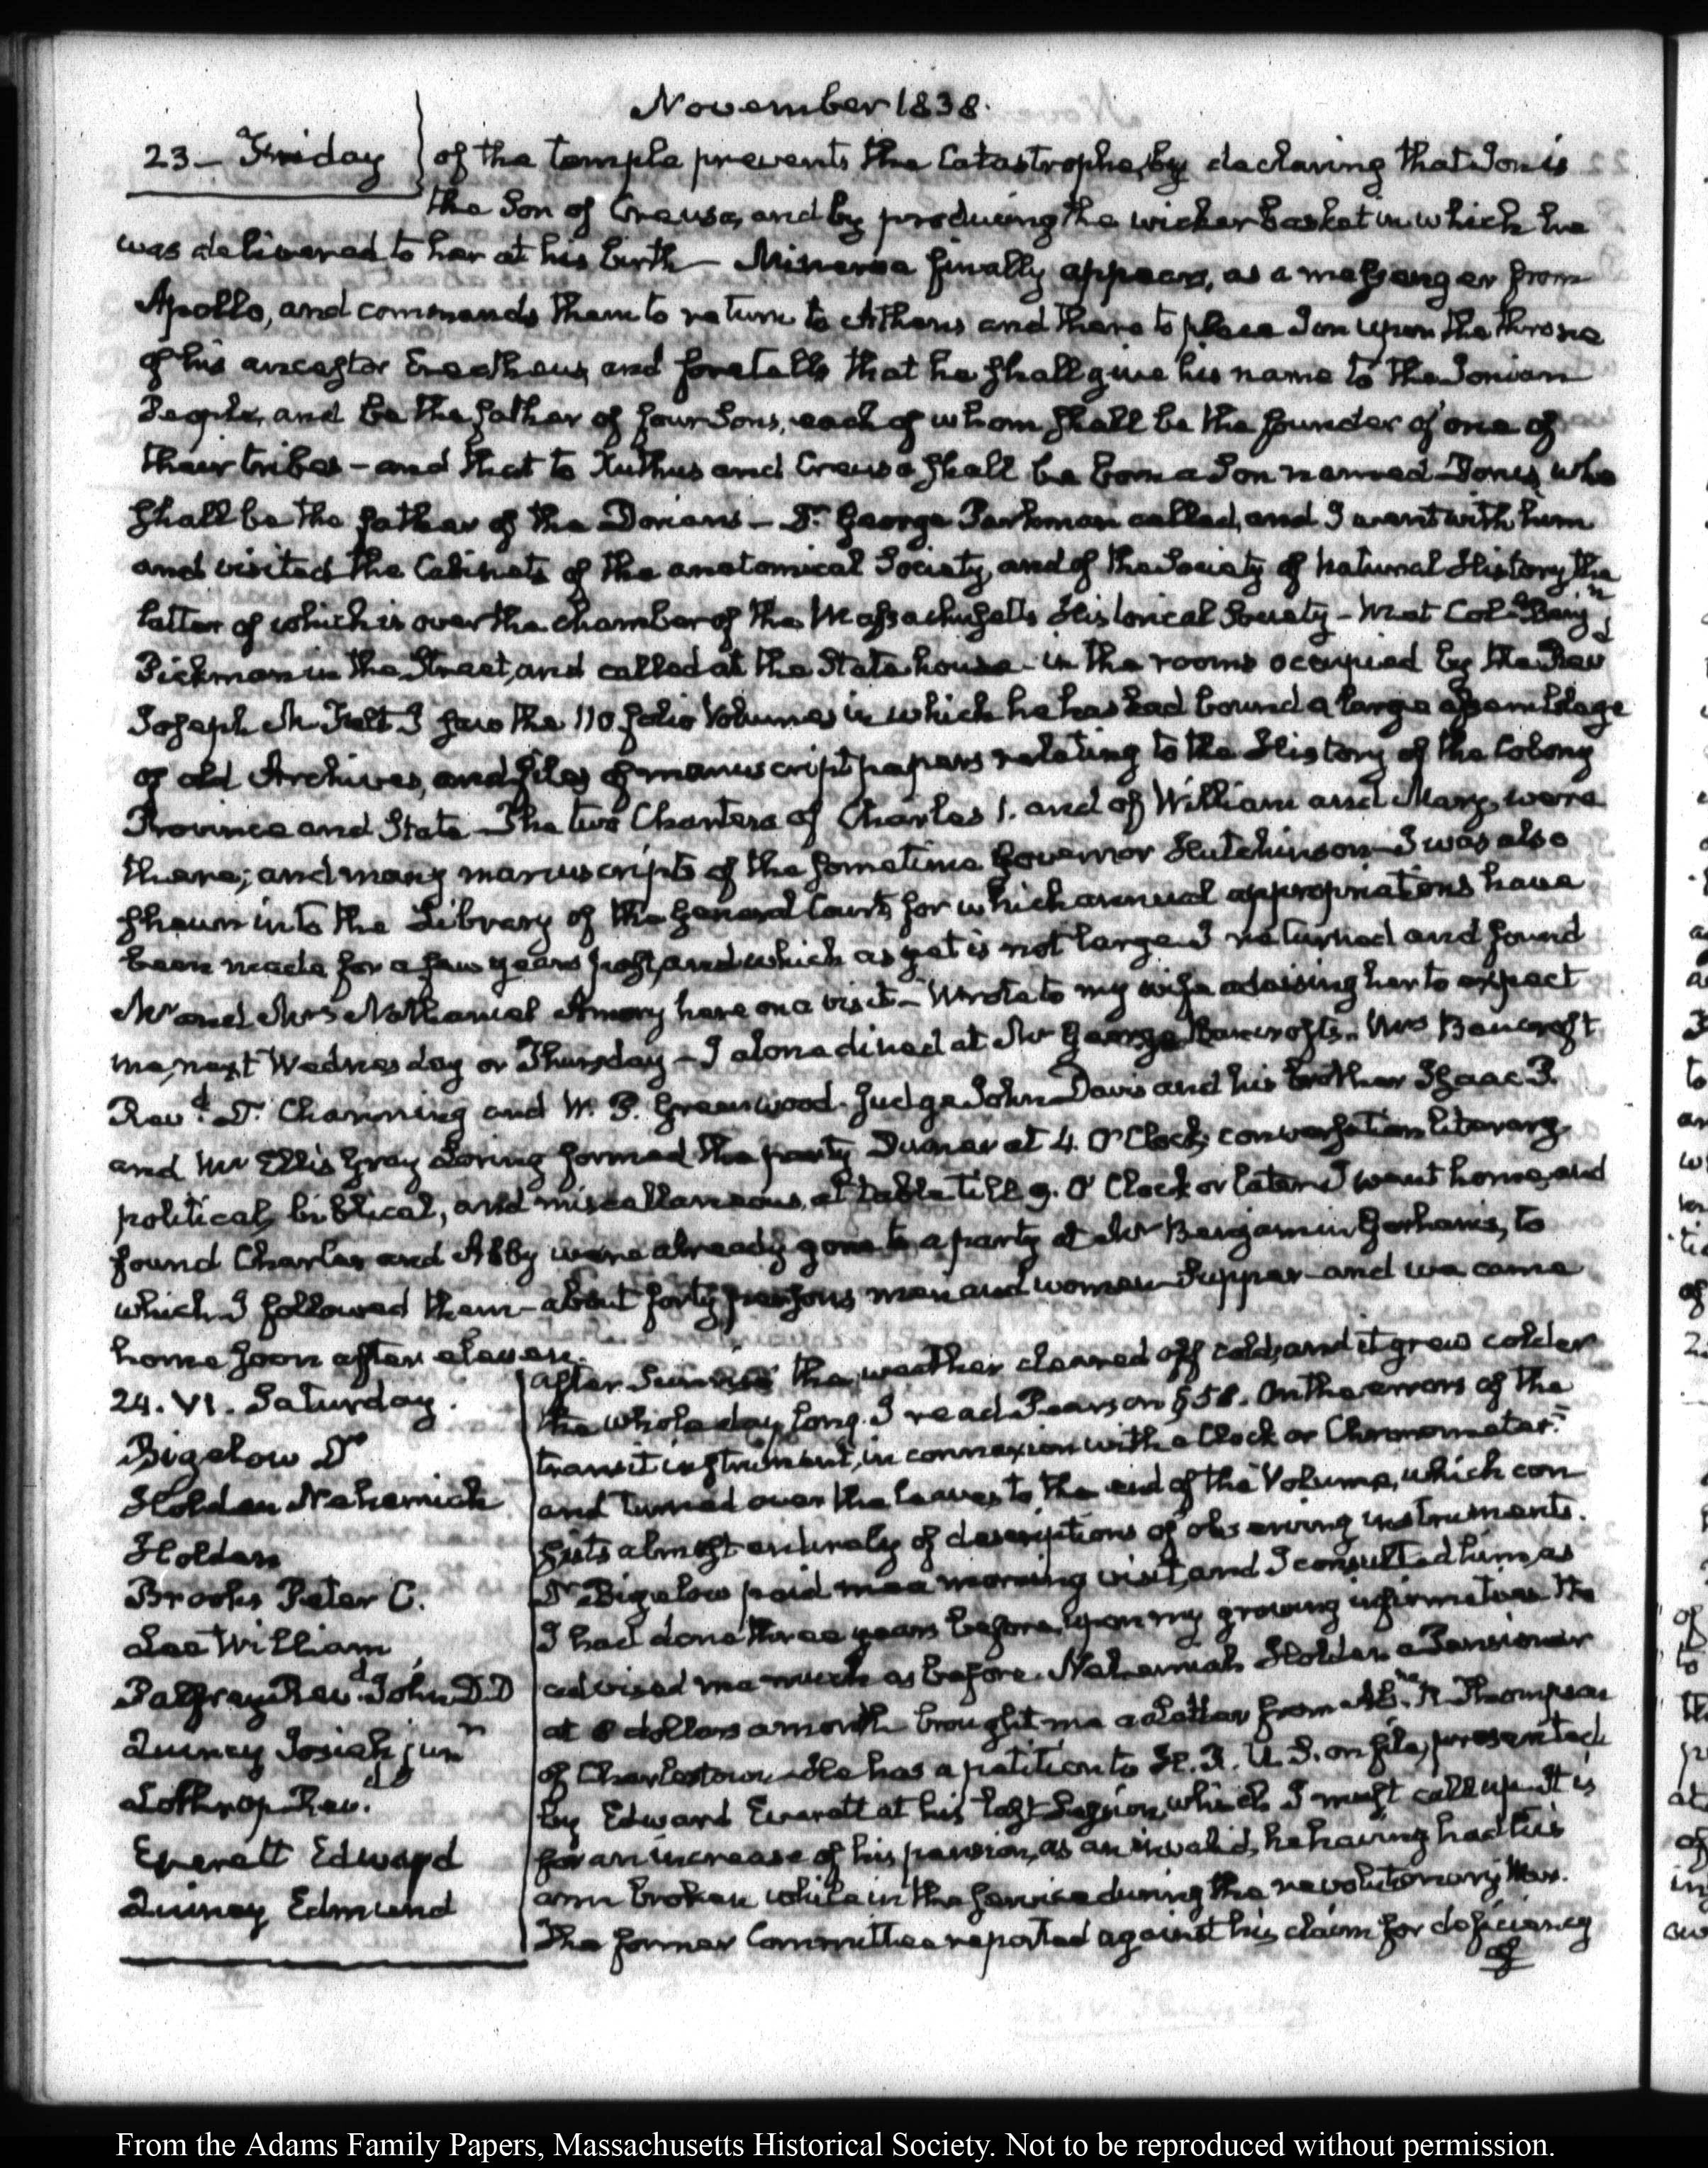 November 1838.
23 — Friday
of the temple prevents the Catastrophe, by declaring that Ion is
the Son of Creusa, and by producing the wicker basket in which he
was delivered to her at his birth — Minerva finally appears, as a messenger from
Apollo, and commands them to return to Athens and there to place Ion upon the throne
of his ancestor Erectheus, and foretells that he shall give his name to the Ionian
People, and be the father of four Sons, each of whom shall be the founder of one of
their tribes — and that to Xuthus and Creusa shall be born a Son named Dorus, who
shall be the father of the Dorians — Dr George Parkman called, and I went with him
and visited the Cabinets of the anatomical Society, and of the Society of Natural History, the
latter of which is over the chamber of the Massachusetts Historical Society — Met Coll. Benjn
Pickman in the Street, and called at the State house — in the rooms occupied by the Revd
Joseph B. Felt I saw the 110 folio Volumes in which he has had bound a large assemblage
of old Archives, and files of manuscript papers relating to the History of the Colony
Province and State — The two Charters of Charles 1. and of William and Mary, were
there; and many manuscripts of the sometime Governor Hutchinson — I was also
shewn into the Library of the General Court, for which annual appropriations have
been made for a few years past, and which as yet is not large. I returned and found
Mr and Mrs Nathaniel Amory here on a visit — Wrote to my wife advising her to expect
me, next Wednesday or Thursday — I alone dined at Mr George Bancroft's. Mrs Bancroft
Revd. Dr. Channing and W. P. Greenwood. Judge John Davis and his brother Isaac P.
and Mr Ellis Gray Loring formed the party. Dinner at 4. O'Clock; conversation literary
political, biblical, and miscellaneous, at table till 9. O'Clock or later. I went home, and
found Charles and Abby were already gone to a party at Mr Benjamin Gorham's, to
which I followed them — about forty persons, men and women — Supper — and we came
home soon after eleven.
24. VI. Saturday.
Bigelow Dr
Holden Nehemiah
Holden
Brooks Peter C.
Lee William
Palfrey Revd. John D.D
Quincy Josiah junr
Lothrop Rev.
Everett Edward
Quincy Edmund
After Sunrise the weather cleared off cold, and it grew colder
the whole day long. I read Pearson §58. On the errors of the
transit instrument, in connexion with a Clock or Chronometer.
and turned over the leaves to the end of the Volume, which con
sists almost entirely of descriptions of observing instruments.
Dr Bigelow paid me a morning visit, and I consulted him as
I had done three years before, upon my growing infirmities. He
advised me much as before. Nehemiah Holden a Pensioner
at 8 dollars a month brought me a Letter from Abm. R. Thompson
of Charlestown — He has a petition to H. R. U. S. on file, presented
by Edward Everett at his last Session, which I must call up. It is
for an increase of his pension, as an invalid, he having had his
arm broken while in the service during the revolutionary War.
The former Committee reported against his claim for deficiency
of
From the Adams Family Papers, Massachusetts Historical Society. Not to be reproduced without permission.